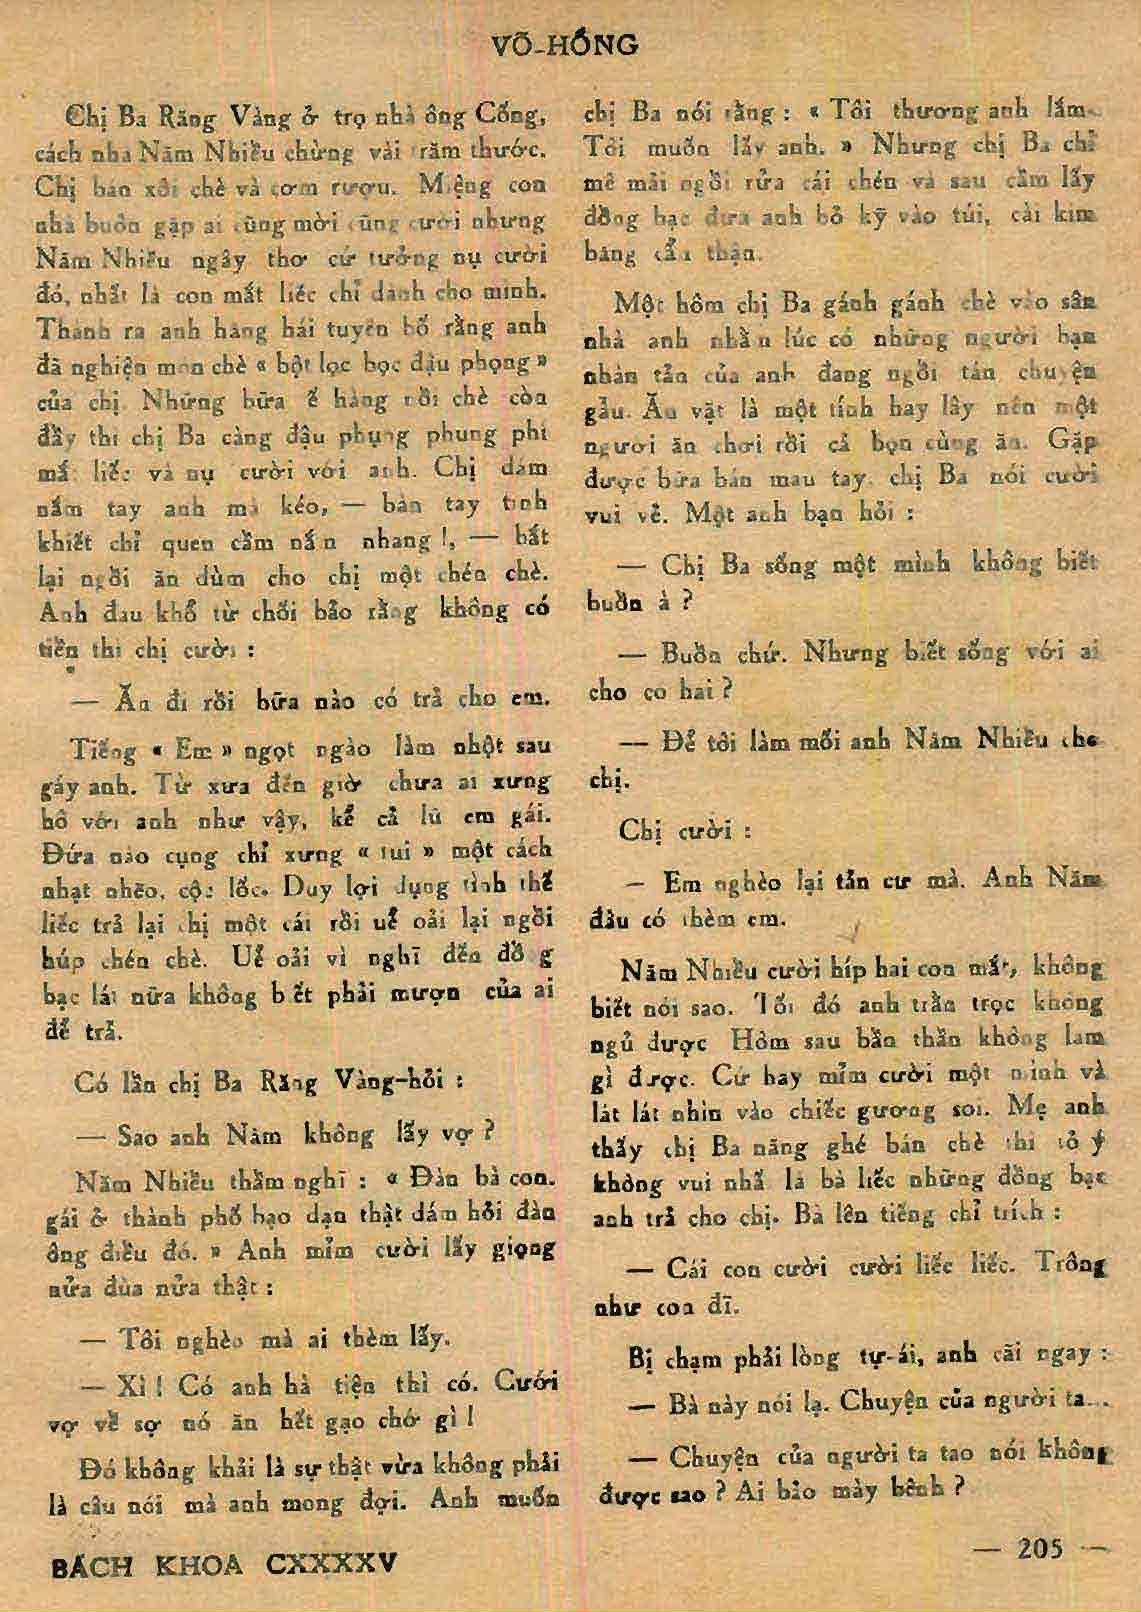 VÕ-HỒNG
Chị Ba Răng Vàng ở trọ nhà ông Cống,
cách nhà Năm Nhiều chừng vài trăm thước.
Chị bán xôi chè và cơm rượu. Miệng con
nhà buôn gặp ai cũng mời cũng cười nhưng
Năm Nhiều ngây thơ cứ tưởng nụ cười
đó, nhất là con mắt liếc chỉ dành cho mình.
Thành ra anh hăng hái tuyên bố rằng anh
đã nghiện món chè « bột lọc bọc đậu phọng »
của chị. Những bữa ế hàng nồi chè còn
đầy thì chị Ba càng đậu phụng phung phí
mắt liếc và nụ cười với anh. Chị dám
nắm tay anh mà kéo, — bàn tay tinh
khiết chỉ quen cầm nắn nhang !, — bắt
lại ngồi ăn dùm cho chị một chén chè.
Anh đau khổ từ chối bảo rằng không có
tiền thì chị cười :
— Ăn đi rồi bữa nào có trả cho em.
Tiếng « Em » ngọt ngào làm nhột sau
gáy anh. Từ xưa đến giờ chưa ai xưng
hô với anh như vậy, kể cả lũ em gái.
Đứa nào cụng chỉ xưng « tui » một cách
nhạt nhẽo, cộc lốc. Duy lợi dụng tình thế
liếc trả lại chị một cái rồi uể oải lại ngồi
húp chén chè. Uể oải vì nghĩ đến đồng
bạc lát nữa không biết phải mượn của ai
để trả.
Có lần chị Ba Răng Vàng-hỏi :
— Sao anh Năm không lấy vợ ?
Năm Nhiều thầm nghĩ : « Đàn bà con.
gái ở thành phố bạo dạn thật dám hỏi đàn
ông điều đó. » Anh mỉm cười lấy giọng
nửa đùa nửa thật :
— Tôi nghèo mà ai thèm lấy.
— Xì ! Có anh hà tiện thì có. Cưới
vợ về sợ nó ăn hết gạo chớ gì !
Đó không khải là sự thật vừa không phải
là câu nói mà anh mong đợi. Anh muốn
chị Ba nói rằng : « Tôi thương anh lắm.
Tôi muốn lấy anh. » Nhưng chị Ba chỉ
mê mải ngồi rửa cái chén và sau cầm lấy
đồng bạc đưa anh bỏ kỹ vào túi, cài kim
băng cẩn thận.
Một hôm chị Ba gánh gánh chè vào sân
nhà anh nhằm lúc có những người bạn
nhàn tản của anh đang ngồi tán chuyện
gẫu. Ăn vặt là một tính hay lây nên một
người ăn chơi rồi cả bọn cùng ăn. Gặp
được bữa bán mau tay, chị Ba nói cười
vui vẻ. Một anh bạn hỏi :
— Chị Ba sống một mình không biết
buồn à ?
— Buồn chứ. Nhưng biết sống với ai
cho có hai ?
— Để tôi làm mối anh Năm Nhiều cho
chị.
Chị cười :
— Em nghèo lại tản cư mà. Anh Năm
đâu có thèm em.
Năm Nhiều cười híp hai con mắt, không
biết nói sao. Tối đó anh trằn trọc không
ngủ được. Hôm sau bần thần không làm
gì được. Cứ hay mỉm cười một mình và
lát lát nhìn vào chiếc gương soi. Mẹ anh
thấy chị Ba năng ghé bán chè thì tỏ ý
không vui nhất là bà liếc những đồng bạc
anh trả cho chị. Bà lên tiếng chỉ trích :
— Cái con cười cười liếc liếc. Trông
như con đĩ.
Bị chạm phải lòng tự-ái, anh cãi ngay :
— Bà này nói lạ. Chuyện của người ta...
— Chuyện của người ta tao nói không
được sao ? Ai bảo mày bênh ?
BÁCH KHOA CXXXXV
— 205 —